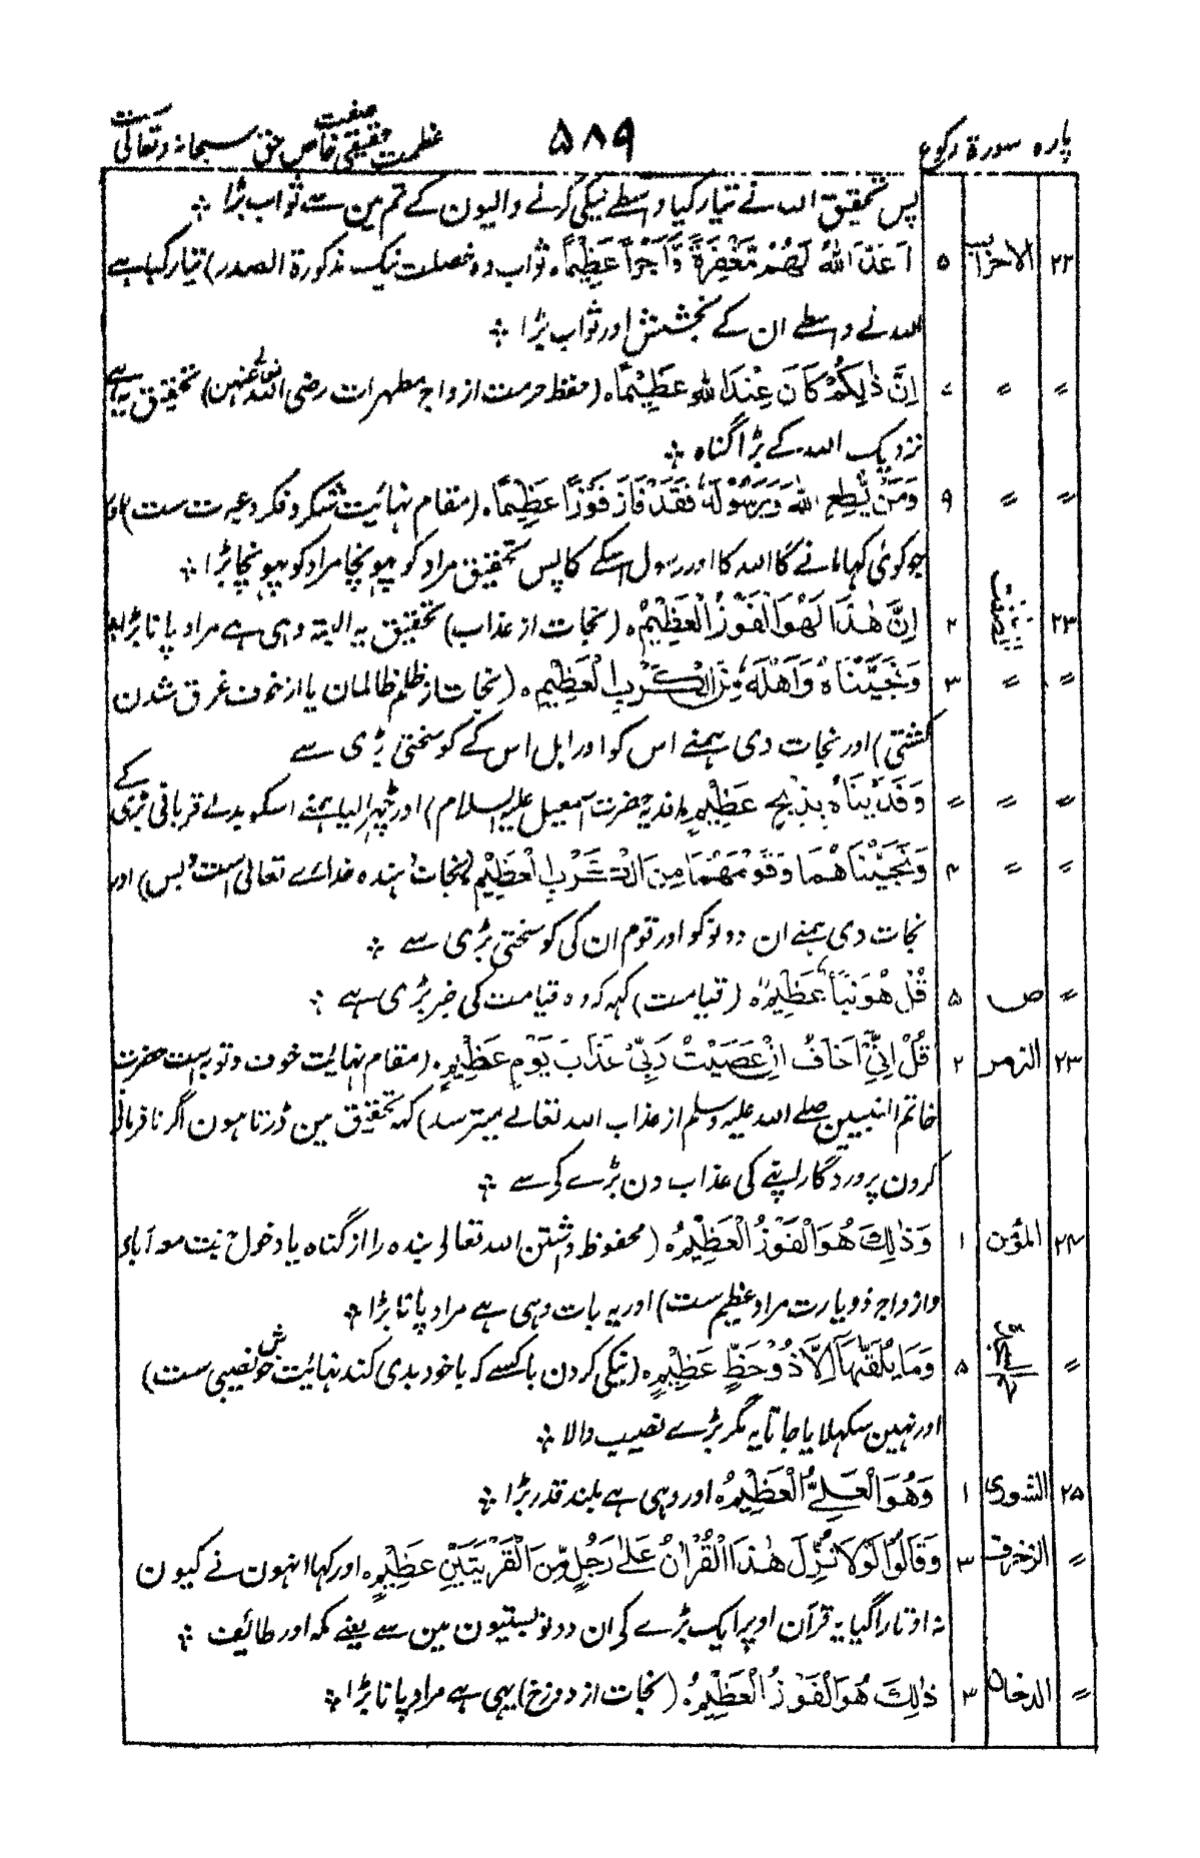 پارہ سورۃ رکوع ۵۸۹ عظمت حقیقی صفت خاص حق سبحانہ وتعالیٰ ست
پس تحقیق اللہ نے تیار کیا واسطے نیکی کرنے والیون کے تم مین سے ثواب بڑا ؞
۲۲ الاحزاب ۵ اَعَدَّ اللّٰهُ لَهُمْ مَّغْفِرَةً وَّاَجْرًا عَظِيْمًاہ ثواب دہ خصلت نیک مذکورۃ الصدر) تیار کیا ہے
اللہ نے واسطے ان کے بخشش اور ثواب بڑا ؞
〃 〃 ۷ اِنَّ ذٰلِكُمْ كَانَ عِنْدَ اللّٰهِ عَظِيْمًاہ (حفظ حرمت ازواج مطہرات رضی اللہ تعالی عنہن) تحقیق یہ ہے
نزدیک اللہ کے بڑا گناہ ؞
〃 〃 ۹ وَمَنْ يُّطِعِ اللّٰهَ وَرَسُوْلَهٗ فَقَدْ فَازَ فَوْزًا عَظِيْمًاہ (مقام نہائیت شکر و فکر و عبرت ست) اور
جو کوئی کہا مانے گا اللہ کا اور رسول اسکے کا پس تحقیق مراد کو پہونچا مراد کو پہونچا بڑا ؞
۲۳ الصفت ۲ اِنَّ هٰذَا لَهُوَ الْفَوْزُ الْعَظِيْمُہ (نجات از عذاب) تحقیق یہ البتہ وہی ہے مراد پانا بڑا
〃 〃 ۳ وَنَجَّيْنَاهُ وَاَهْلَهٗ مِنَ الْكَرْبِ الْعَظِيْمِہ (نجات از ظلم ظالمان یا از خوف غرق شدن
کشتی) اور نجات دی ہمنے اس کو اور اہل اس کے کو سختی بڑی سے
〃 〃 〃 وَفَدَيْنَاهُ بِذِبْحٍ عَظِيْمٍہ (فدیہ حضرت اسمعیل علیہ السلام) اور چھڑا لیا ہمنے اسکو بدلے قربانی بڑی کے
〃 〃 ۴ وَنَجَّيْنَاهُمَا وَقَوْمَهُمَا مِنَ الْكَرْبِ الْعَظِيْمِ (نجات دہندہ خدائے تعالی است و بس) اور
نجات دی ہمنے ان دونو کو اور قوم ان کی کو سختی بڑی سے ؞
〃 ص ۵ قُلْ هُوَ نَبَأٌ عَظِيْمٌہ (قیامت) کہہ کہ وہ قیامت کی خبر بڑی ہے ؞
۲۳ الزمر ۲ قُلْ اِنِّيْ اَخَافُ اِنْ عَصَيْتُ رَبِّيْ عَذَابَ يَوْمٍ عَظِيْمٍہ (مقام نہائیت خوف و توبہ ست حضرت
خاتم النبیین صلے اللہ علیہ وسلم از عذاب اللہ تعالے میترسد) کہہ تحقیق مین ڈرتا ہون اگر نافرمانی
کرون پروردگار اپنے کی عذاب دن بڑے کے سے ؞
۲۴ المؤمن ۱ وَذٰلِكَ هُوَ الْفَوْزُ الْعَظِيْمُہ (محفوظ داشتن اللہ تعالی بندہ را از گناہ یا دخول جنت معہ آباء
وازواج و ذریات مراد عظیم ست) اور یہ بات وہی ہے مراد پانا بڑا ؞
〃 ۵ وَمَا يُلَقّٰىهَآ اِلَّا ذُوْحَظٍّ عَظِيْمٍہ (نیکی کردن با کسے کہ با خود بدی کند نہائیت خوش نصیبی ست)
اور نہین سکہلایا جاتا یہ مگر بڑے نصیب والا ؞
۲۵ الشوری ۱ وَهُوَ الْعَلِيُّ الْعَظِيْمُہ اور وہی ہے بلند قدر بڑا ؞
〃 الزخرف ۳ وَقَالُوْا لَوْلَا نُزِّلَ هٰذَا الْقُرْاٰنُ عَلٰى رَجُلٍ مِّنَ الْقَرْيَتَيْنِ عَظِيْمٍہ اور کہا انہون نے کیون
نہ اوتارا گیا یہ قرآن اوپر ایک بڑے کے ان دونو بستیون مین سے یعنے مکہ اور طائف ؞
〃 الدخان ۳ ذٰلِكَ هُوَ الْفَوْزُ الْعَظِيْمُہ (نجات از دوزخ) یہی ہے مراد پانا بڑا ؞